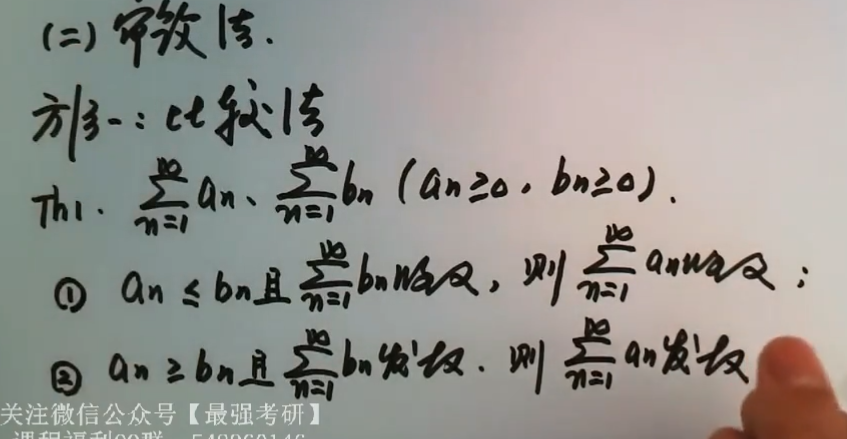 (二) 审敛法.
方法一: 比较法
Th1. ∑_{n=1}^{∞} an、∑_{n=1}^{∞} bn (an≥0, bn≥0).
① an ≤ bn 且 ∑_{n=1}^{∞} bn 收敛, 则 ∑_{n=1}^{∞} an 收敛;
② an ≥ bn 且 ∑_{n=1}^{∞} bn 发散. 则 ∑_{n=1}^{∞} an 发散
关注微信公众号【最强考研】